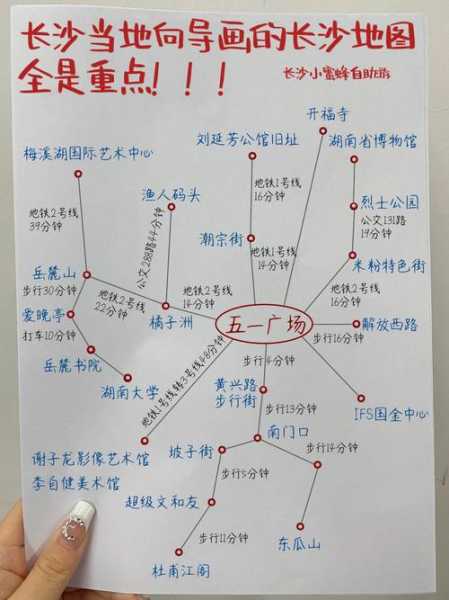 长沙当地向导画的长沙地图
全是重点！！！
长沙小蜜蜂自助游
开福寺
刘延芳公馆旧址
湖南省博物馆
梅溪湖国际艺术中心
渔人码头
地铁1号线
16分钟
烈士公园
公交131路
19分钟
地铁2号线
39分钟
公交288路44分钟
潮宗街
地铁1号线
14分钟
米粉特色街
岳麓山
步行30分钟
地铁2号线
22分钟
地铁2号线
14分钟
地铁2号线
16分钟
爱晚亭
打车10分钟
橘子洲
五一广场
解放西路
步行16分钟
岳麓书院
湖南大学
地铁1号线转3号线48分钟
步行4分钟
黄兴路
步行街
步行13分钟
IFS国金中心
南门口
谢子龙影像艺术馆
李自健美术馆
坡子街
步行14分钟
步行5分钟
超级文和友
步行11分钟
东瓜山
杜甫江阁